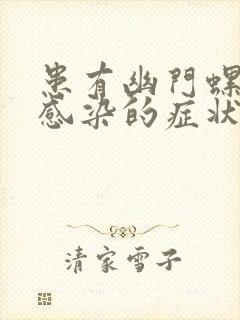 患有幽門螺
感染的症狀
清家雪子